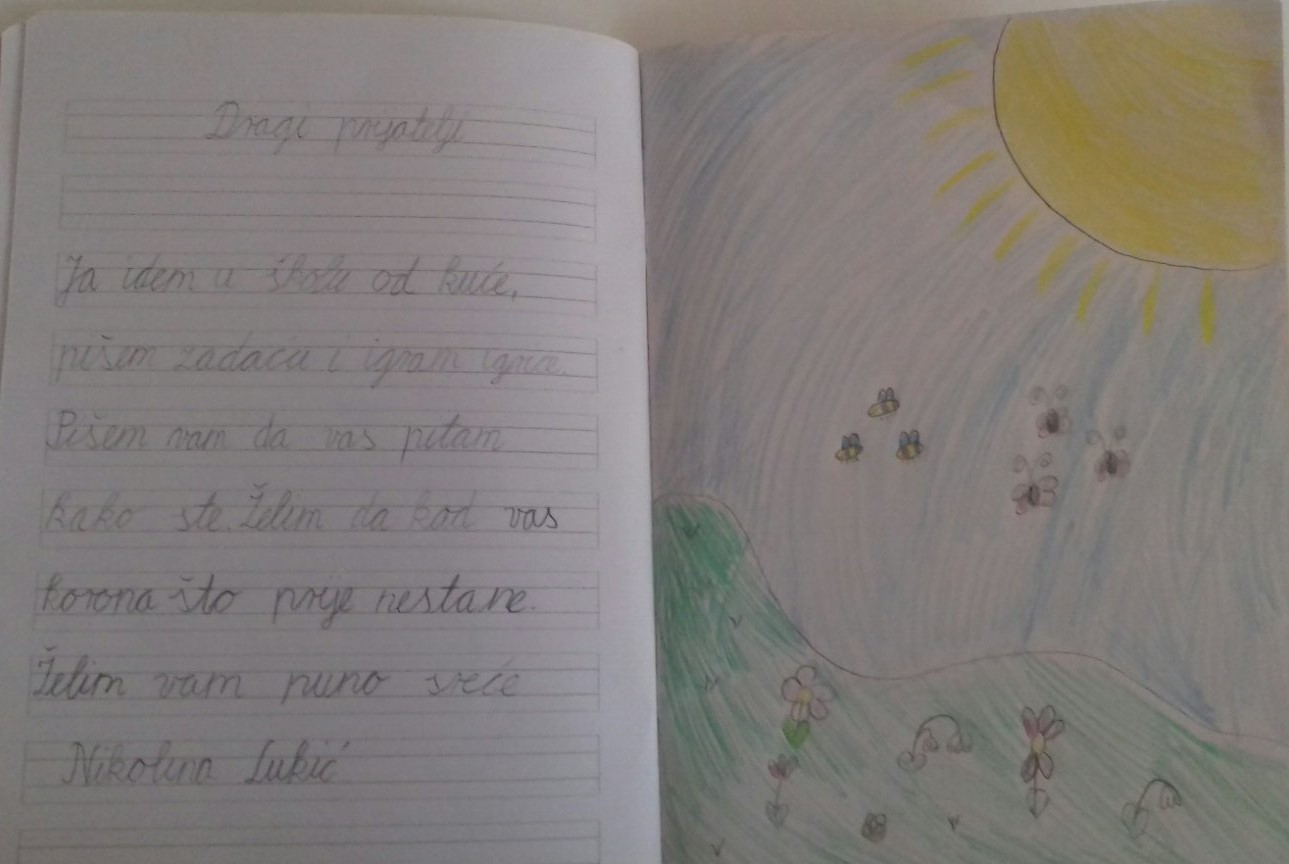 Dragi prijatelji
Ja idem u školu od kuće,
pišem zadaću i igram igrice.
Pišem vam da vas pitam
kako ste. Želim da kod vas
korona što prije nestane.
Želim vam puno sreće
Nikolina Lukić